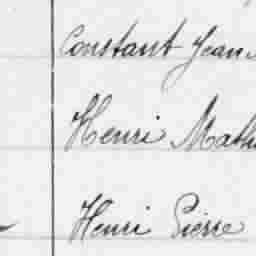 Constant Jean
Henri Mathi
Henri Pierre